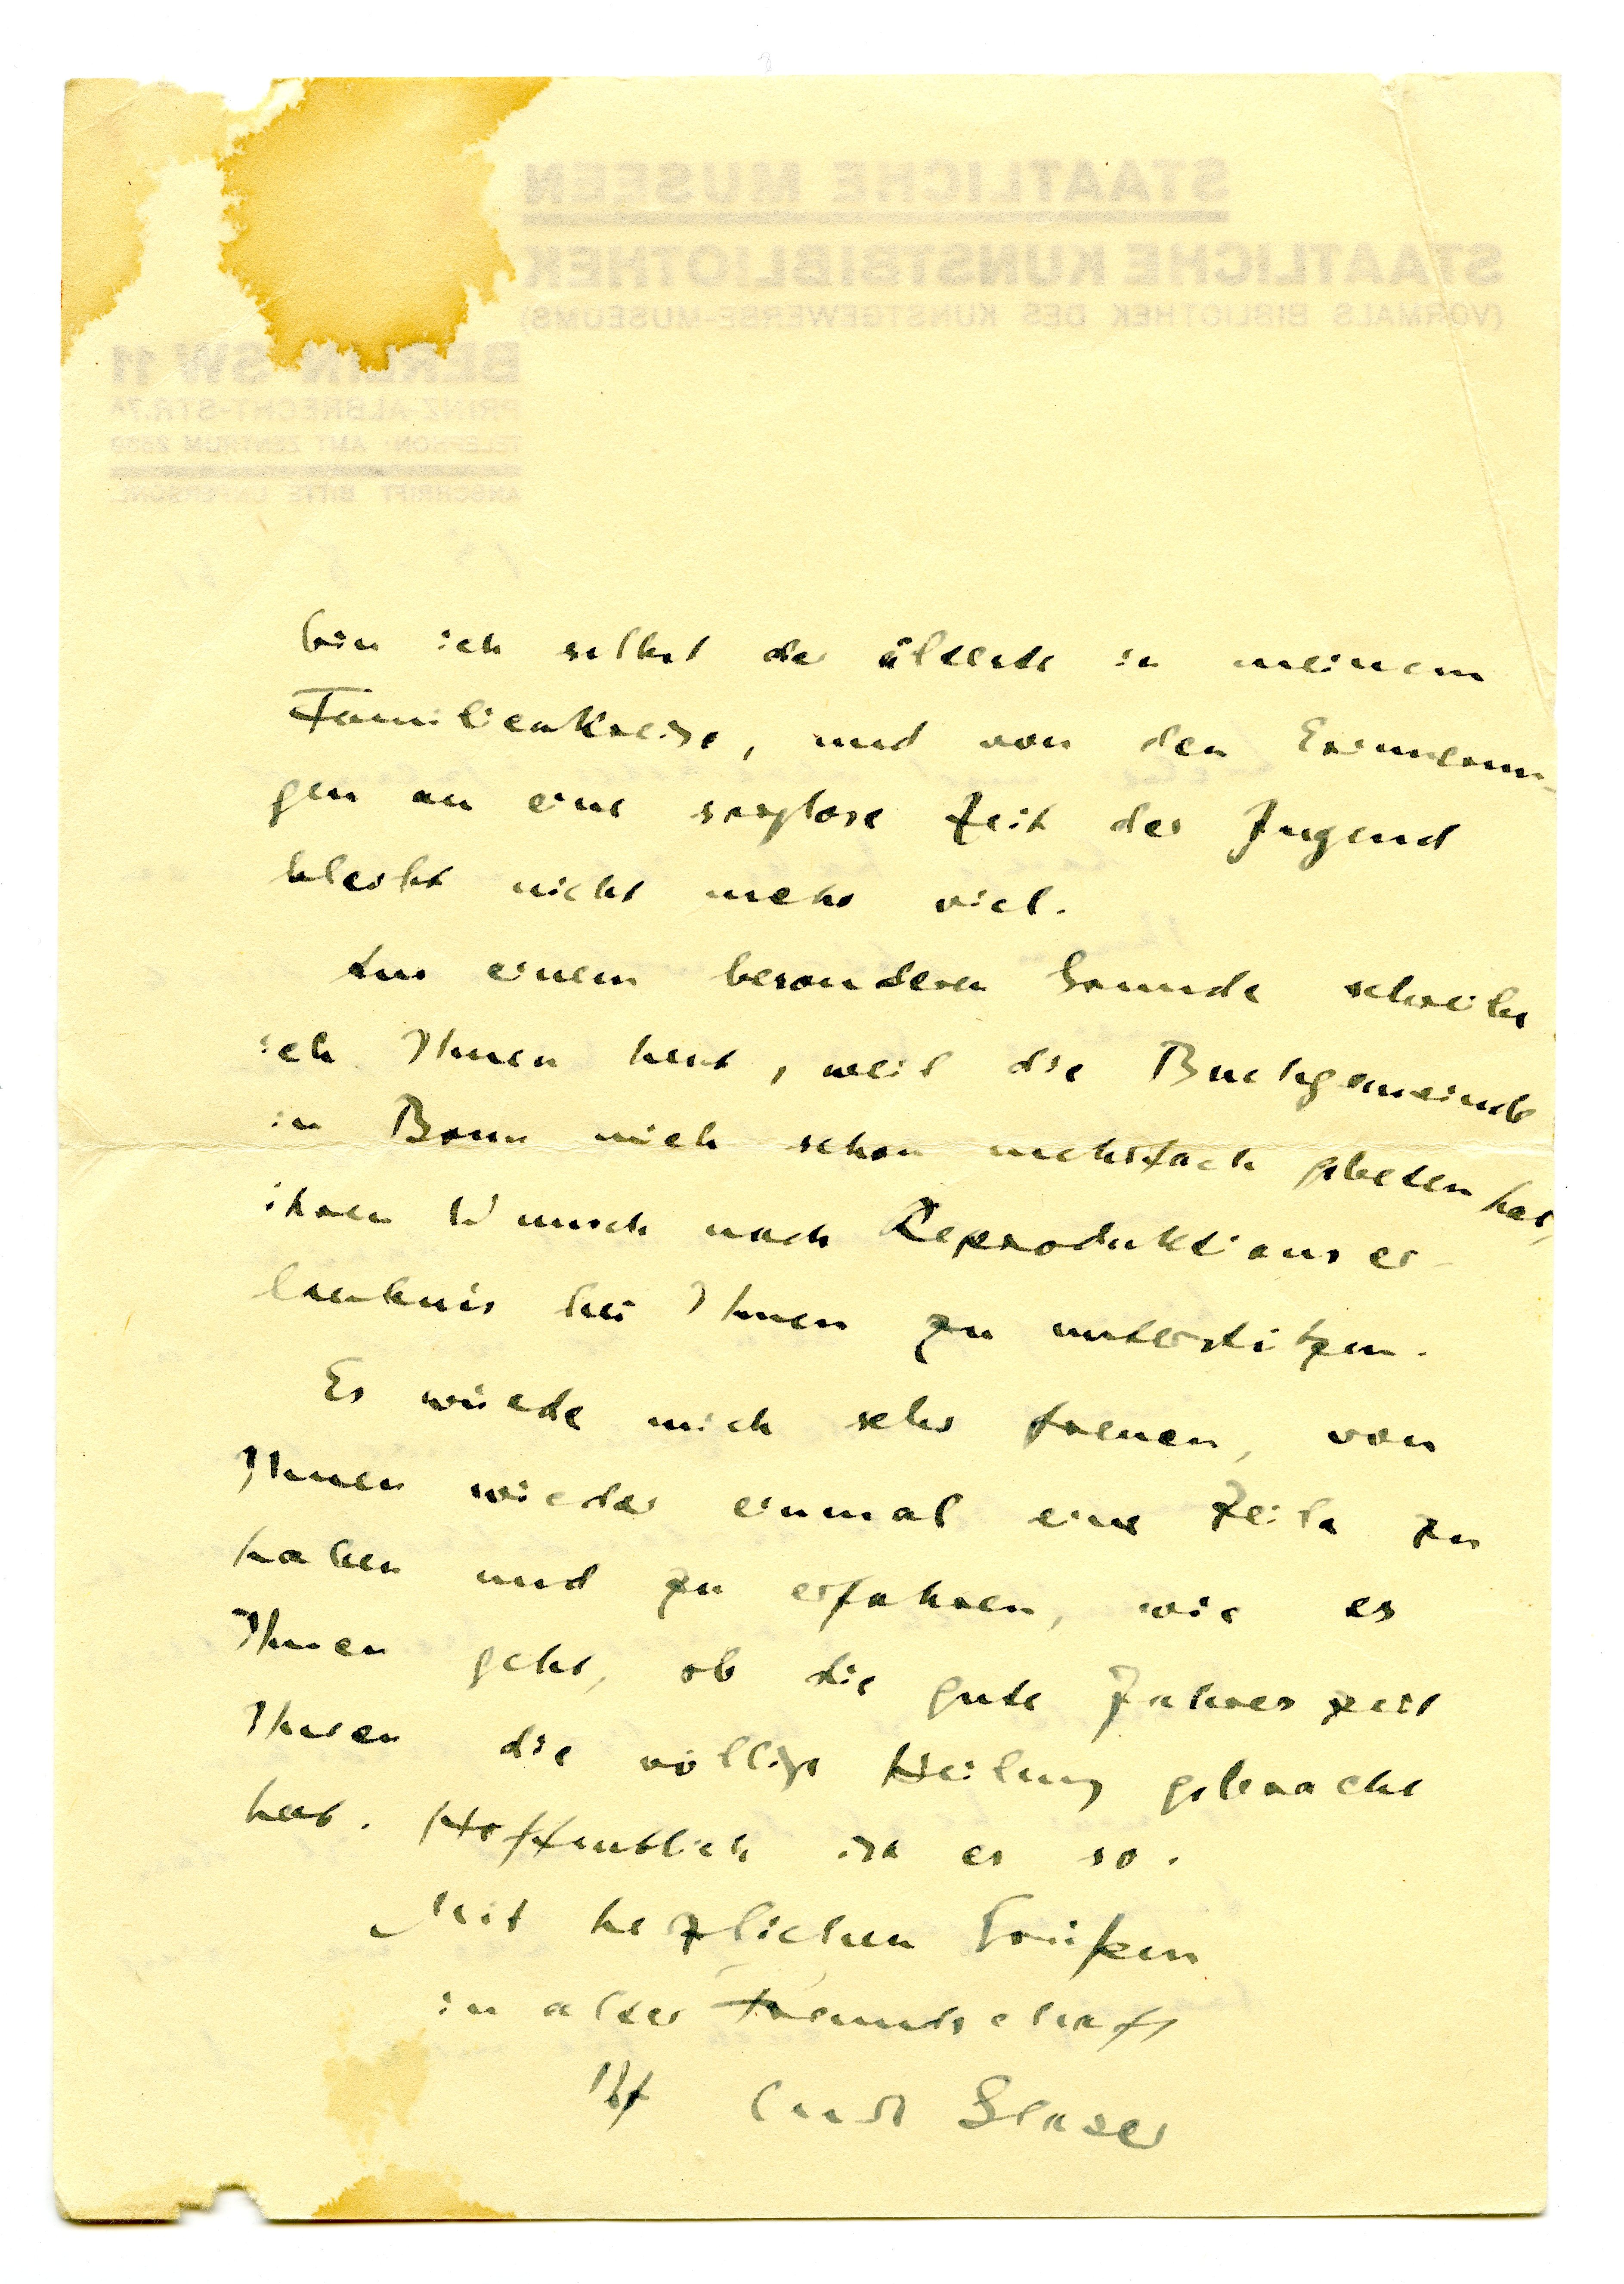 STAATLICHE MUSEEN
STAATLICHE KUNSTBIBLIOTHEK
(VORMALS BIBLIOTHEK DES KUNSTGEWERBE-MUSEUMS)
BERLIN SW 11
PRINZ-ALBRECHT-STR. 7A
TELEFON: AMT ZENTRUM
ANSCHRIFT BITTE UNPERSÖNL.
bin ich selbst der älteste in meinem
Familienkreise, und von den Erinnerun-
gen an eine sorglose Zeit der Jugend
bleibt nicht mehr viel.
Aus einem besonderen Grunde schreibe
ich Ihnen heut, weil die Buchgemeinde
in Bonn mich schon mehrfach gebeten hat,
ihren Wunsch nach Reproduktionser-
laubnis bei Ihnen zu unterstützen.
Es würde mich sehr freuen, von
Ihnen wieder einmal eine Zeile zu
haben und zu erfahren, wie es
Ihnen geht, ob die gute Jahreszeit
Ihnen die völlige Heilung gebracht
hat. Hoffentlich ist es so.
Mit herzlichen Grüßen
in alter Freundschaft
Ihr Curt Glaser